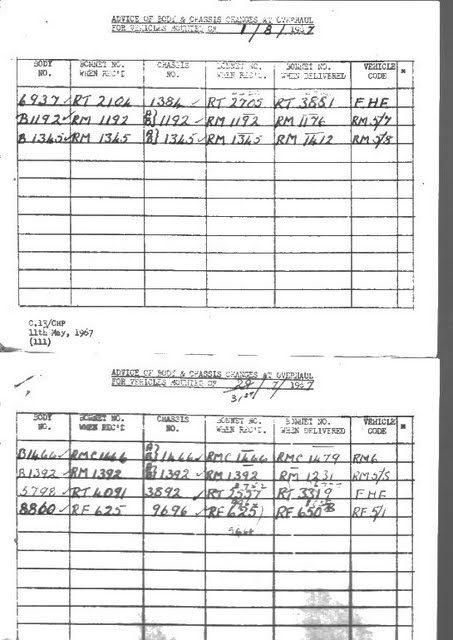 ADVICE OF BODY & CHASSIS CHANGES AT OVERHAUL
FOR VEHICLES MOUNTED ON 1/8/1967
BODY NO. BONNET NO. WHEN REC'D CHASSIS NO. BONNET NO. WHEN REC'D. BONNET NO. WHEN DELIVERED VEHICLE CODE *
6937 ✓ RT 2104 1384 ✓ RT 2705 RT 3851 FHE
B1192 ✓ RM 1192 A} B} 1192 ✓ RM 1192 RM 1176 RM 5/7
B 1345 ✓ RM 1345 A} B} 1345 ✓ RM 1345 RM 1412 RM 5/8
C.13/CHP
11th May, 1967
(111)
ADVICE OF BODY & CHASSIS CHANGES AT OVERHAUL
FOR VEHICLES MOUNTED ON 28/7/1967
31st
BODY NO. BONNET NO. WHEN REC'D. CHASSIS NO. BONNET NO. WHEN REC'D. BONNET NO. WHEN DELIVERED VEHICLE CODE *
B1466 ✓ RMC 1466 A} B} 1466 ✓ RMC 1466 RMC 1479 RM6
B1392 ✓ RM 1392 A} B} 1392 ✓ RM 1392 RM 1231 RM 5/5
5798 ✓ RT 4091 3892 ✓ RT 2557 RT 3319 FHE
8860 ✓ RF 625 9696 ✓ RF 625 RF 650 RF 5/1